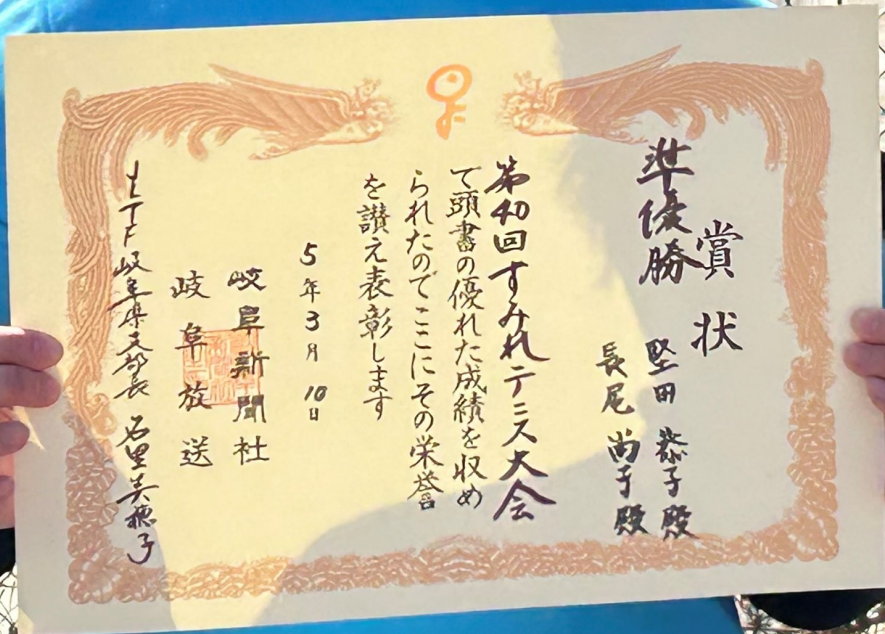 賞状
準優勝
堅田 恭子殿
長尾 尚子殿
第40回すみれテニス大会
て頭書の優れた成績を収め
られたのでここにその栄誉
を讃え表彰します
5年3月10日
岐阜新聞社
岐阜放送
岐阜県支部長 石里美穂子